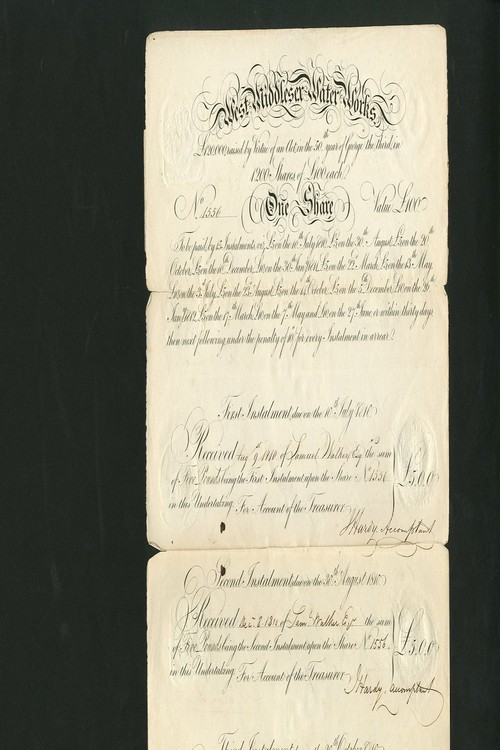 West Middlesex Water Works
£120,000, raised by Virtue of an Act, in the 50th year of George the third, in
1200 Shares of £100 each
No. 1556 One Share Value £100
To be paid by 15 Instalments, viz. £5 on the 10th July 1810, £5 on the 30th August, £5 on the 20th
October, £5 on the 10th December, £10 on the 30th Jany. 1811, £5 on the 22d March, £5 on the 13th May,
£10 on the 3d July, £5 on the 23d August, £5 on the 14th October, £5 on the 5th December, £10 on the 26th
Jany. 1812, £5 on the 17th March, £10 on the 7th May, and £10 on the 27th June, or within thirty days
then next following, under the penalty of 10s for every Instalment in arrear.
First Instalment, due on the 10th July 1810
Received Augt. 9th 1810 of Samuel Walker Esqre. the sum
of Five Pounds being the First Instalment upon the Share No. 1556
in this Undertaking. For Account of the Treasurer
£5,,0,,0
J Hardy, Accomptant
Second Instalment, due on the 30th August 1810
Received 1810 of Saml. Walker Esqr. the sum
of Five Pounds being the Second Instalment upon the Share No. 1556
in this Undertaking. For Account of the Treasurer
£5,,0,,0
J Hardy, accomptant
Third Instalment, due on the 20th October 1810